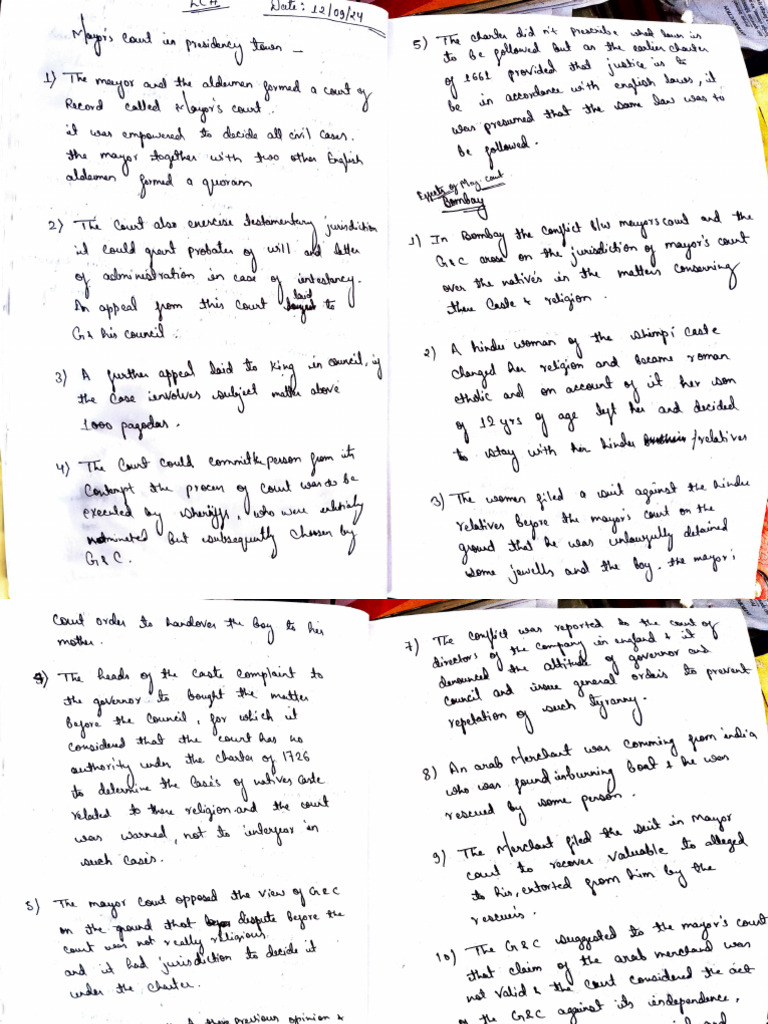 LCH
Date: 12/09/24
Mayor's Court in presidency town -
1) The mayor and the aldermen formed a court of
Record called Mayor's court.
it was empowered to decide all civil cases.
The mayor together with two other English
aldemen formed a quoram
2) The Court also exercise testamentary jurisdiction
it could grant probates of will and letter
of administration in case of intestancy.
An appeal from this Court laid to
G & his council.
3) A further appeal laid to King in council, if
the case involves subject matter above
1000 pagodas.
4) The Court could commit person from its
Contempt the proces of Court was to be
executed by sheriffs, who were
nominated but subsequently choosen by
G & C.
5) The charter did n't prescribe what laws is
to be followed but as the earlier charter
of 1661 provided that justice is to
be in accordance with english laws, it
was presumed that the same law was to
be followed.
Effects of May. court
Bombay
1) In Bombay the conflict b/w mayors court and the
G & C arose on the jurisdiction of mayor's court
over the natives in the matters consurning
there Caste & religion.
2) A hindu woman of the shimpi caste
changed her religion and became roman
cthdic and on account of it her son
of 12 yrs of age left her and decided
to stay with her hindu /relatives
3) The women filed a suit against the hindu
relatives before the mayor's court on the
ground that he was unlawfully detained
some jewells and the boy. the mayor;
Court order to handover the boy to his
mother.
4) The heads of the caste complaint to
the governor to bought the matter
before the Council, for which it
considerd that the court has no
authority under the charter of 1726
to determine the Casis of natives caste
related to there religion. and the court
was warned, not to interfear in
such cases.
5) The mayor court opposed the view of G & C
on the ground that dispute before the
court was not really religious.
and it had jurisdiction to decide it
under the charter.
their previous opinion &
7) The conflict was reported to the court of
directors of the company in england & it
denounced the attitude of governor and
council and issue general orders to prevent
repetation of such tyranny.
8) An arab Merchant was comming from india
who was found in burning boat & he was
rescued by some person.
9) The Merchant filed the suit in Mayor
court to recover valuable to alleged
to his, extorted from him by the
rescuers.
10) The G & C suggested to the mayor's court
that claim of the arab merchand was
not valid & the court considered the act
of the G & C against its independence,
and